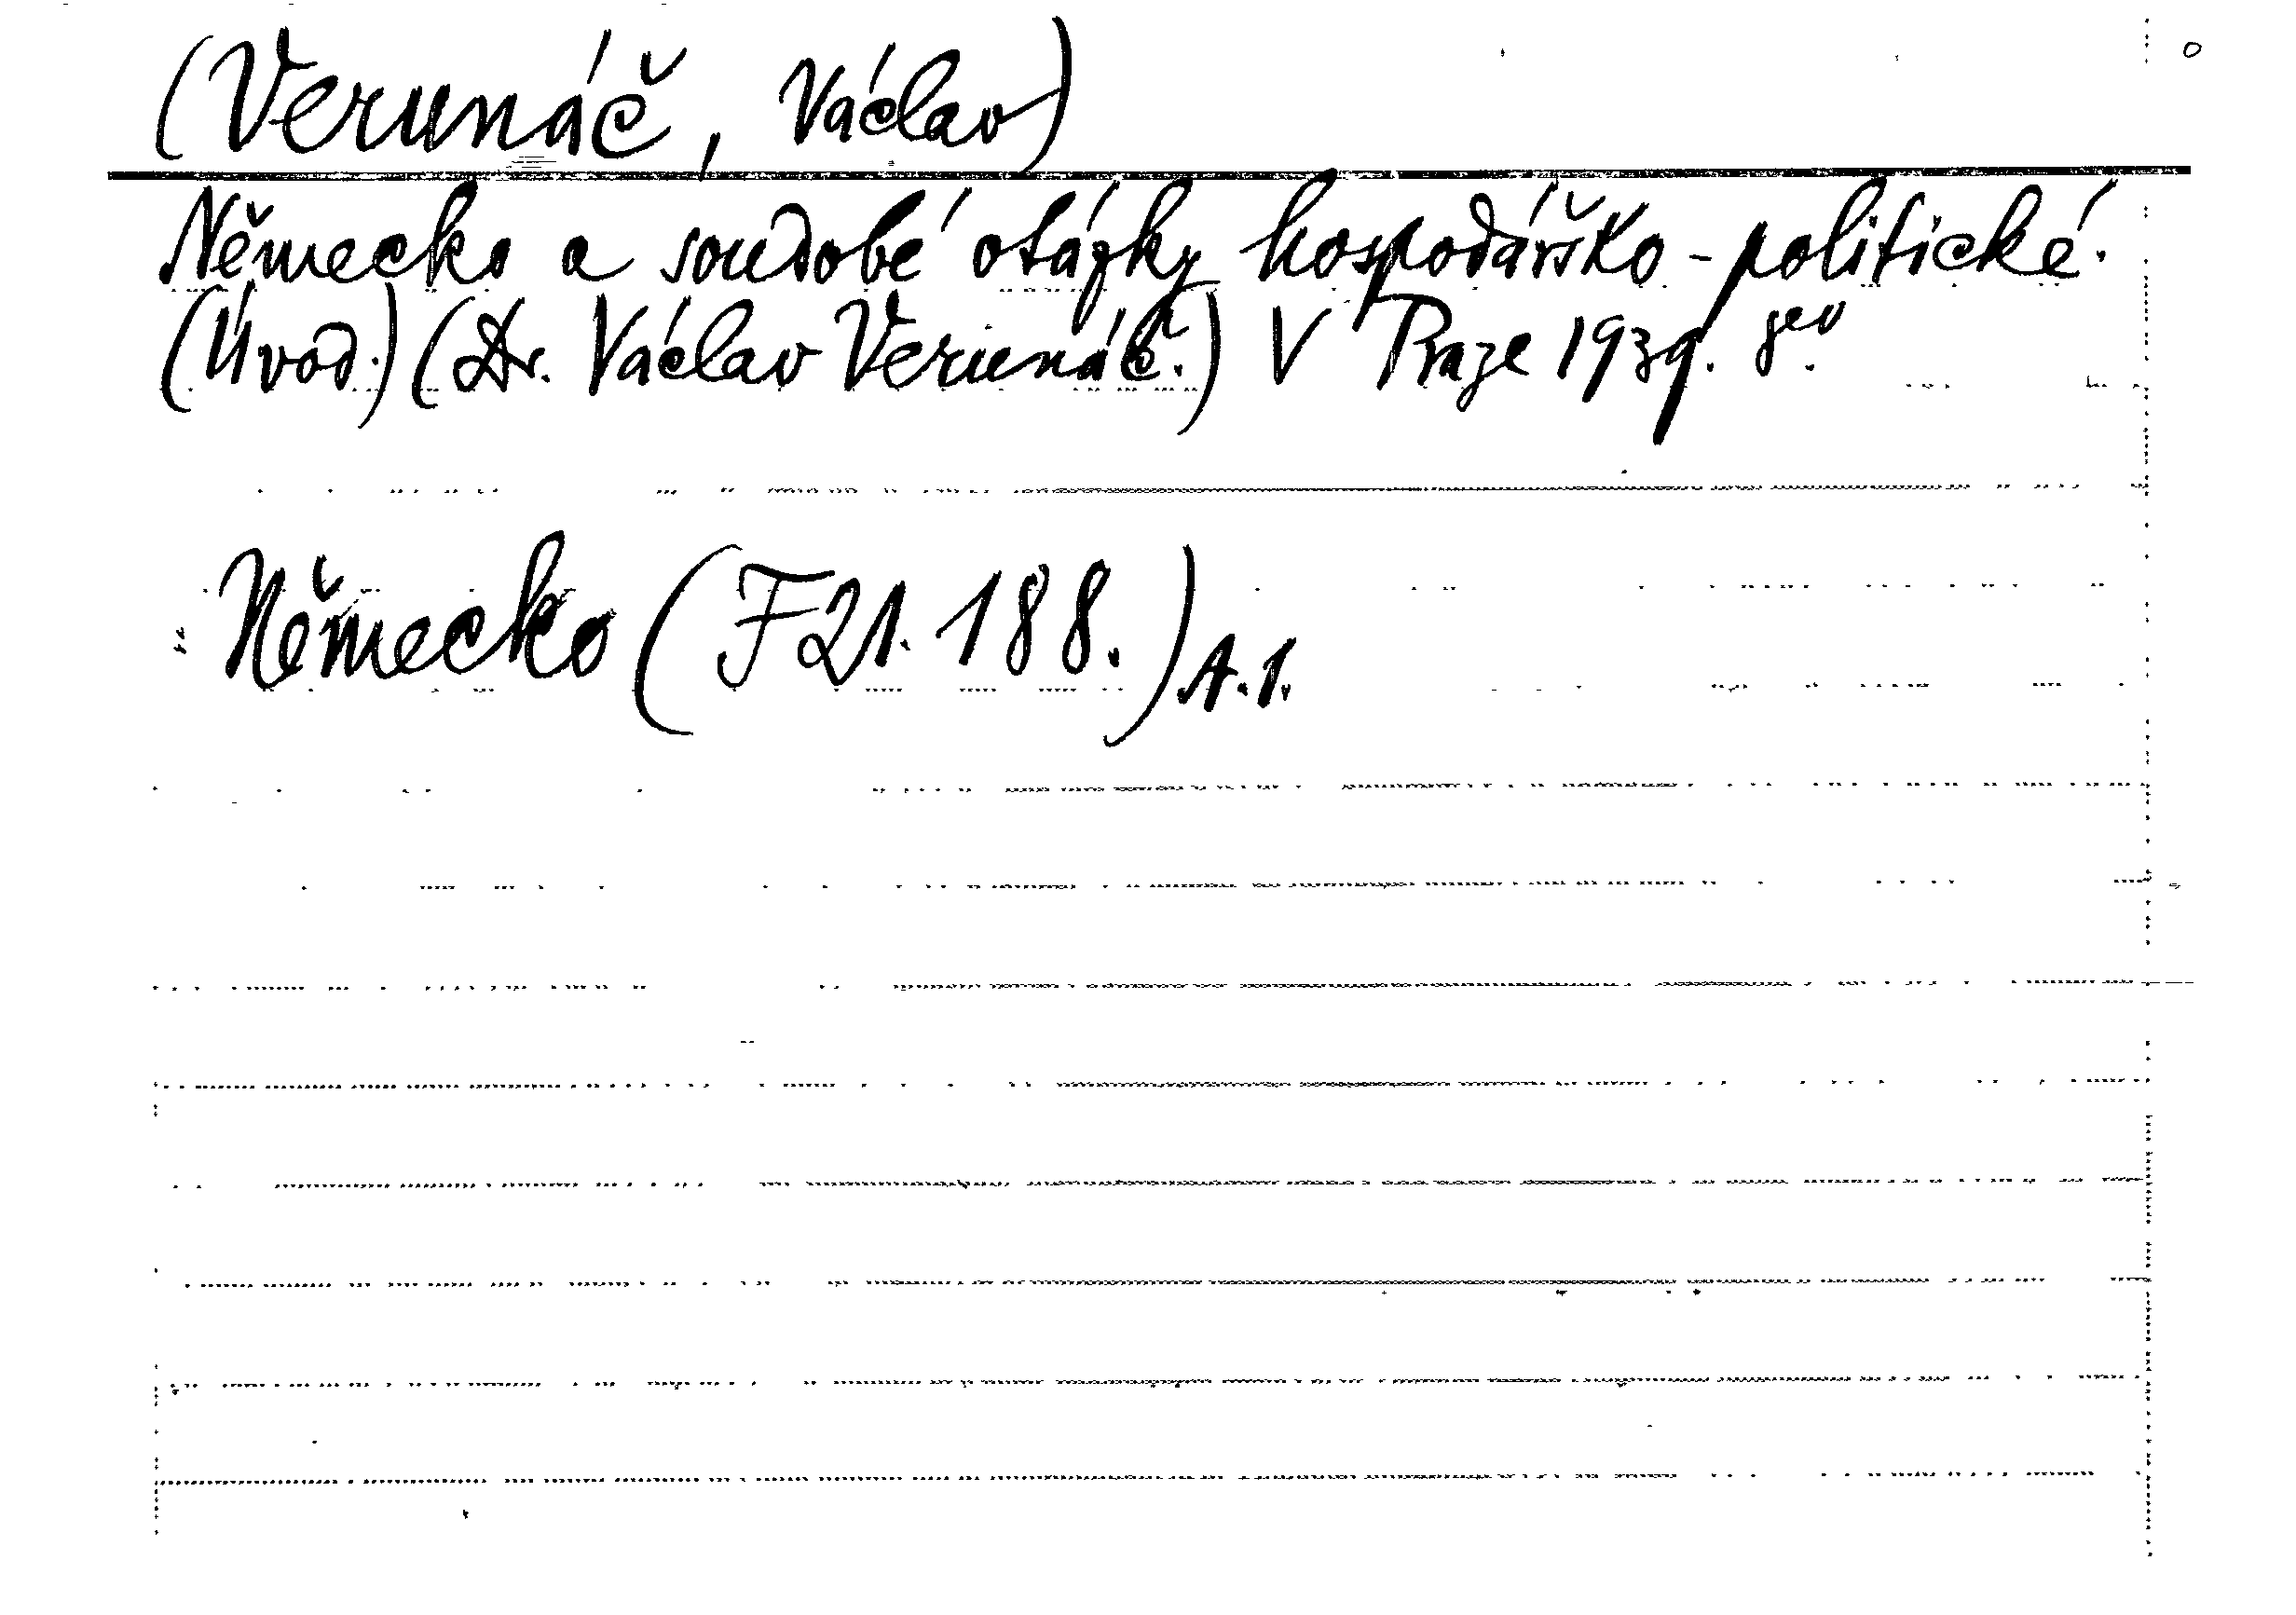 (Verunáč, Václav)
Německo a soudobé otázky hospodářsko-politické.
(Úvod.) (Dr. Václav Verunáč.) V Praze 1939. 8ev.
Německo (F21.188.) A.1.